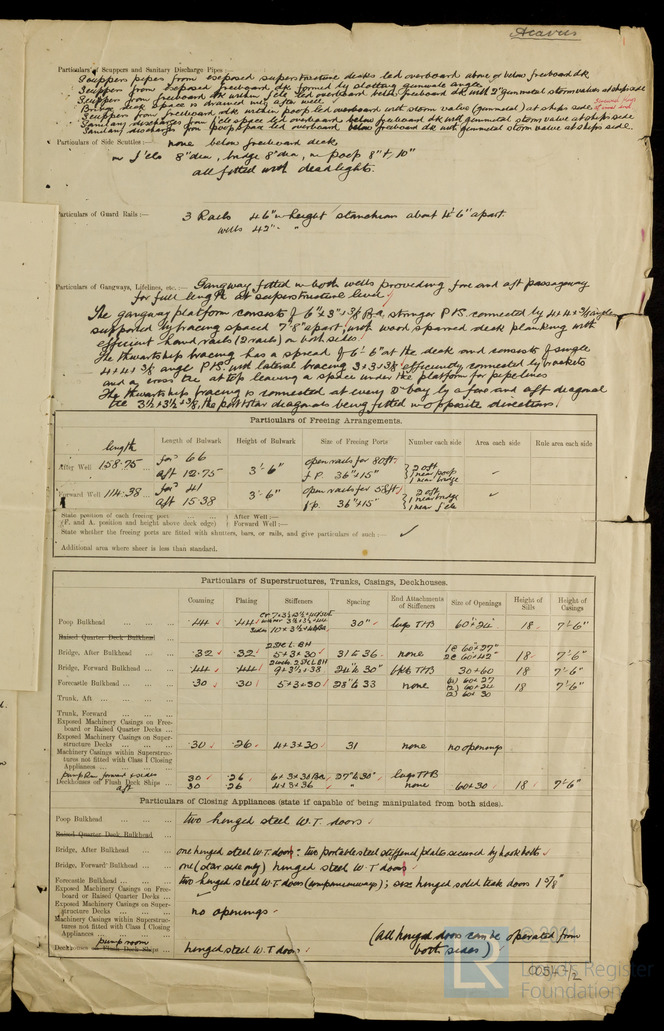 Particulars of Scuppers and Sanitary Discharge Pipes :—
Scupper pipes from exposed superstructure decks led overboard above or below freeboard dk.
Scupper from exposed freeboard dk formed by slotting gunwale angle
Scupper from freeboard dk within f'cle led overboard below freeboard dk with 2" gunmetal storm valves at ships side
Bridge deck space is drained into after well
Scuppers from freeboard dk within poop led overboard with storm valve (gunmetal) at ships side
Sanitary discharges from f'cle space led overboard below freeboard dk with gunmetal storm valve at ships side
Sanitary discharge from poop space led overboard below freeboard dk with gunmetal storm valve at ships side.
Particulars of Side Scuttles :— none below freeboard deck
in f'cle 8" dia, bridge 8" dia, in poop 8" & 10"
all fitted with deadlights.
Particulars of Guard Rails :— 3 Rails 46" in height stanchions about 4'-6" apart
wells 42" - "
Particulars of Gangways, Lifelines, etc. :— Gangway fitted in both wells providing fore and aft passageway
for full length at superstructure level
The gangway platform consists of 6" x 3" x 3/8 B.A. stringer P&S. connected by 4 x 4 x 3/8 angles
supported by bracing spaced 7'-8" apart, with wood sparred deck planking with
efficient hand rails (2 rails) on both sides
The thwartship bracing has a spread of 6'-6" at the deck and consists of single
4 x 4 x 3/8 angle P&S. with lateral bracing 3 x 3 x 3/8 efficiently connected by brackets
and a cross tie at top leaving a space under the platform for pipe lines
The thwartship bracing is connected at every bay by a fore and aft diagonal
tie 3½ x 3½ x 3/8, the port & star diagonals being fitted in opposite directions.
Particulars of Freeing Arrangements.
length
Length of Bulwark Height of Bulwark Size of Freeing Ports Number each side Area each side Rule area each side
After Well 158·75 for'd 66 aft 12·75 3'-6" open rails for 80 ft. f.p. 36" x 15" 2 aft 1 near poop 1 near bridge
Forward Well 114·38 for'd 41 aft 15·38 3'-6" open rails for 58 ft. f.p. 36" x 15" 2 aft 1 near bridge 1 near f'cle
State position of each freeing port ... ... After Well :—
(F. and A. position and height above deck edge) Forward Well :—
State whether the freeing ports are fitted with shutters, bars, or rails, and give particulars of such :—
Additional area where sheer is less than standard.
Particulars of Superstructures, Trunks, Casings, Deckhouses.
Coaming Plating Stiffeners Spacing End Attachments of Stiffeners Size of Openings Height of Sills Height of Casings
Poop Bulkhead ·44 ·44 30" lugs T&B 60 x 24 18 7'-6"
Raised Quarter Deck Bulkhead
Bridge, After Bulkhead ·32 ·32 5 x 3 x 30 31 & 36 none 1 @ 60 x 27" 2 @ 60 x 42" 18 7'-6"
Bridge, Forward Bulkhead ·44 ·44 9 x 3½ x 38 24" & 30" bkts T&B 30 x 60 18 7'-6"
Forecastle Bulkhead ·30 ·30 5 x 3 x 30 28" & 33 none (2) 60 x 24 (2) 60 x 30 18 7'-6"
Trunk, Aft
Trunk, Forward
Exposed Machinery Casings on Freeboard or Raised Quarter Decks
Exposed Machinery Casings on Superstructure Decks ·30 ·26 4 x 3 x 30 31 none no openings
Machinery Casings within Superstructures not fitted with Class 1 Closing Appliances
pump Rm forward & sides 30 ·26 6 x 3 x 38 BA 27" & 30" lugs T&B
Deckhouses on Flush Deck Ships aft 30 ·26 4 x 3 x 36 " none 60 x 30 18 7'-6"
Particulars of Closing Appliances (state if capable of being manipulated from both sides).
Poop Bulkhead two hinged steel W.T. doors
Raised Quarter Deck Bulkhead
Bridge, After Bulkhead one hinged steel W.T. door : two portable steel stiffened plates secured by hook bolts
Bridge, Forward Bulkhead one (star side only) hinged steel W.T. door
Forecastle Bulkhead two hinged steel W.T. doors (companionways) ; six hinged solid teak doors 1 5/8"
Exposed Machinery Casings on Freeboard or Raised Quarter Decks
Exposed Machinery Casings on Superstructure Decks no openings
Machinery Casings within Superstructures not fitted with Class 1 Closing Appliances
pump room
Deckhouses on Flush Deck Ships hinged steel W.T. door
(all hinged doors can be operated from
both sides)
LR
Lloyd's Register
Foundation